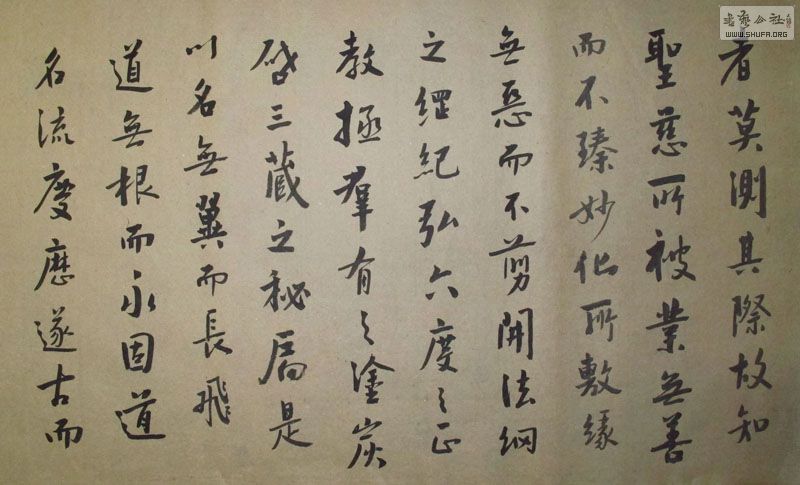 者莫測其際故知
聖慈所被業無善
而不臻妙化所敷緣
無惡而不剪開法網
之綱紀弘六度之正
教拯羣有之塗炭
啓三藏之秘扃是
以名無翼而長飛
道無根而永固道
名流慶歷遂古而
書藝公社
WWW.SHUFA.ORG